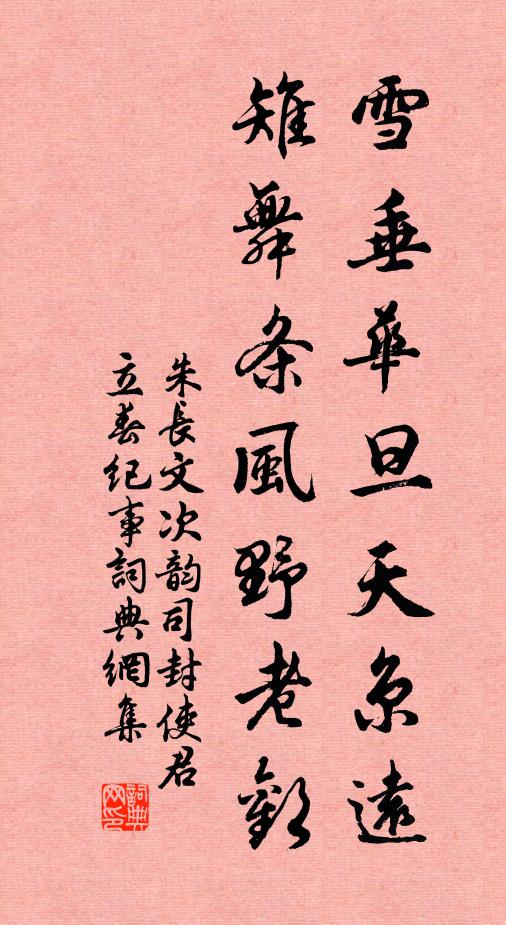 雪垂華旦天京遠
雉舞条風野老歡
朱長文次韵司封使君
立春纪事詞典網集
詞典
网印